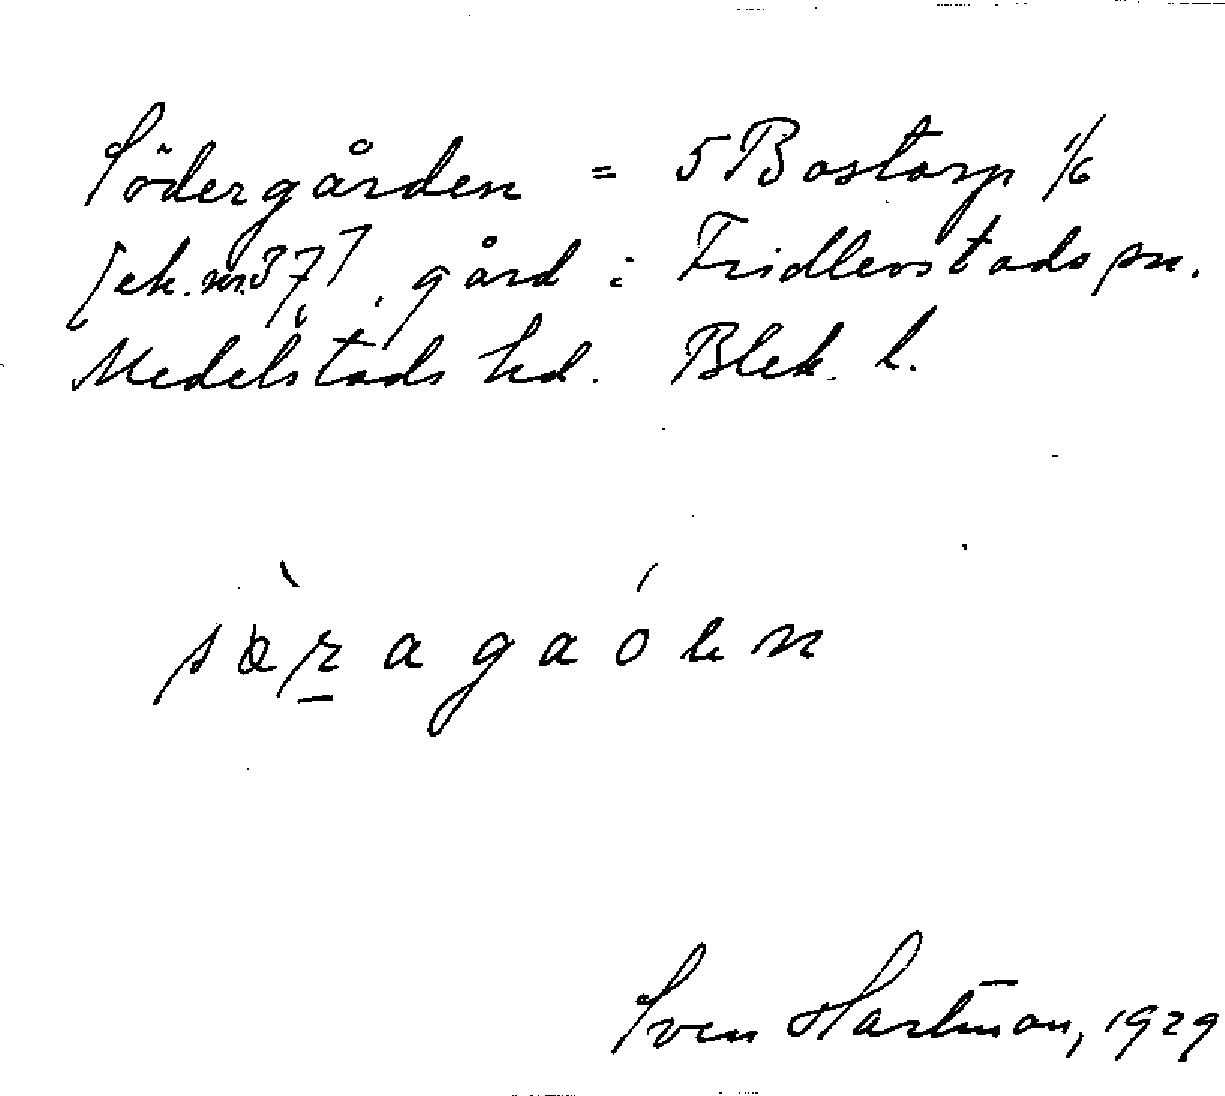 Södergården = 5 Bostorp 1/6
[ek. nr. 37], gård i Fridlevstads sn.
Medelstads hd. Blek. l.
Sven Hartman, 1929